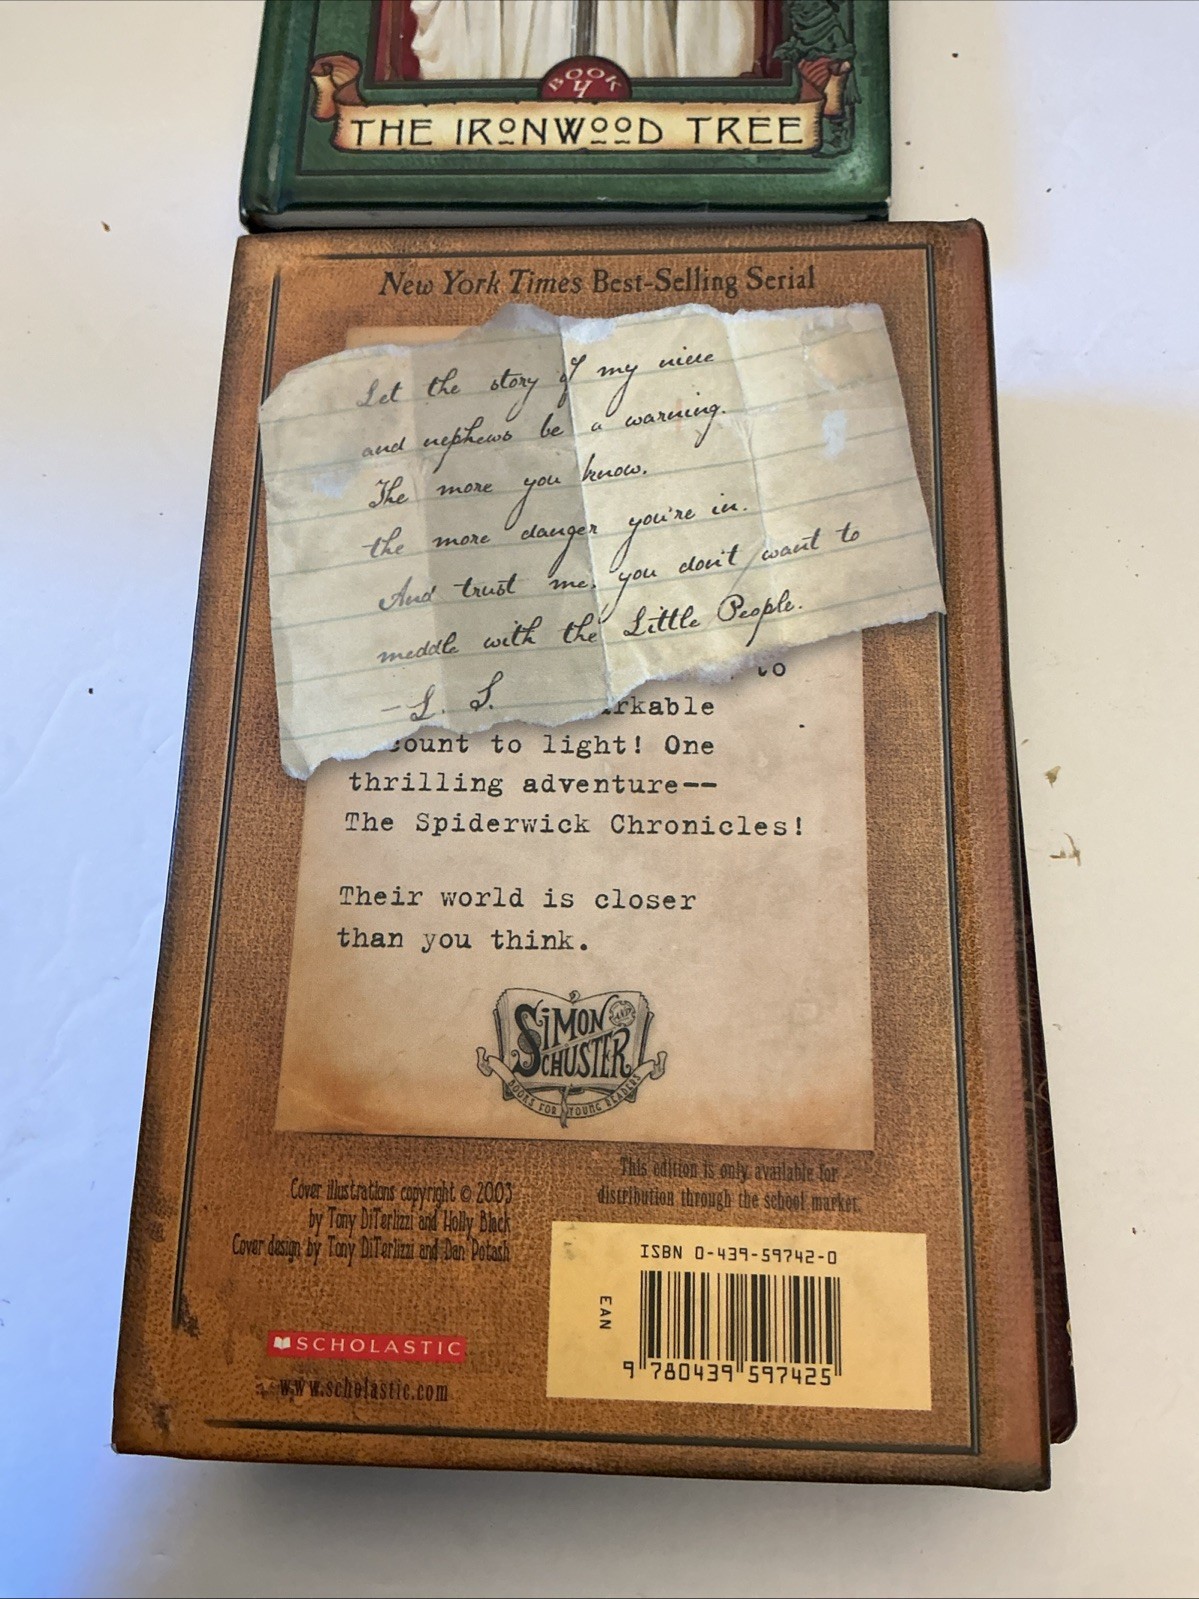 BOOK
4
THE IRONWOOD TREE
New York Times Best-Selling Serial
Let the story of my niece
and nephews be a warning.
The more you know,
the more danger you're in.
And trust me, you don't want to
meddle with the Little People.
—L. S.
to
rkable
count to light! One
thrilling adventure--
The Spiderwick Chronicles!
Their world is closer
than you think.
SIMON AND
SCHUSTER
BOOKS FOR YOUNG READERS
This edition is only available for
distribution through the school market.
Cover illustrations copyright © 2003
by Tony DiTerlizzi and Holly Black
Cover design by Tony DiTerlizzi and Dan Potash
ISBN 0-439-59742-0
EAN
9 780439 597425
SCHOLASTIC
www.scholastic.com